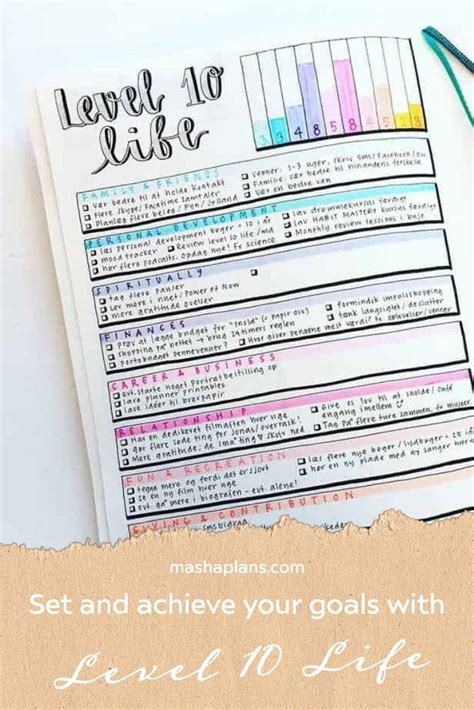 Level 10
life
3 3 4 8 5 8 4 5 2 3
FAMILY & FRIENDS
Vær bedre til at holde kontakt
Flere Skype/Facetime samtaler
Planlæg flere besøg / Fyn / Jylland
Venner: 1-3 uger, skriv sms/Facebook
Familie: vær bedre til
Vær en bedre ven
PERSONAL DEVELOPMENT
læs personal development bøger
mood tracker
Review level 10 life
hør flere podcasts.
lav drømmekursus færdigt
lav HABIT MASTERY kursus færdigt
Monthly review sessions i baje
SPIRITUALLY
tag flere pauser
Lær more i nuet / Power of Now
mere gratitude øvelser
FINANCES
prøv at lægge budget for
shopping på nettet → brug 24 timers reglen
formindsk impulsshopping
tænk langsigtet/declutter
Hvor giver pengene mest værdi? to oplevelser/venner
CAREER & BUSINESS
evt. starte noget portrætbestilling op
lave planner printables
lave idéer til brevpapir
RELATIONSHIP
Hav en dedikeret filmaften hver uge
gør flere søde ting for Jonas/overrask!
Mere gratitude: de små ting & skriv ned
Give os lov til at snolde / Café
engang imellem
Tag på flere ture sammen, fx museer
FUN & RECREATION
tegne mere og fordi det er sjovt
se en ny film hver uge
evt. gå mere i biografen - evt. alene!
læs flere nye bøger/lydbøger = 25 i
hør en ny plade med ny sanger hver
GIVING & CONTRIBUTION
mashaplans.com
Set and achieve your goals with
Level 10 Life